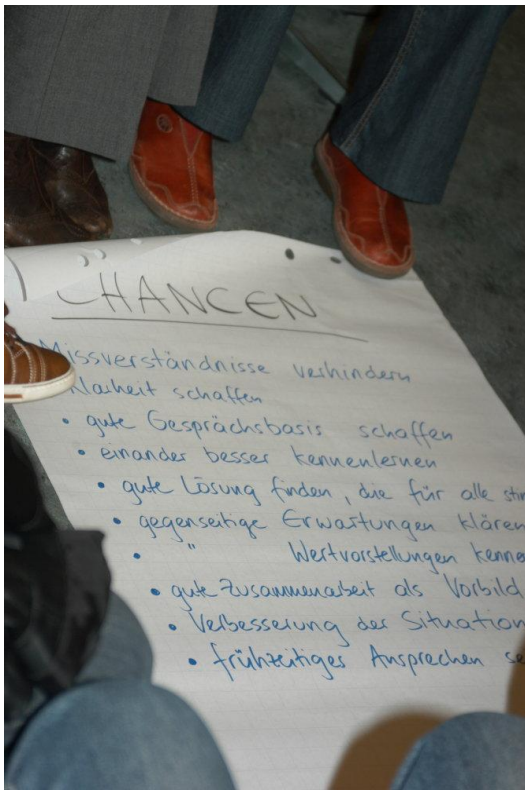 CHANCEN
Missverständnisse verhindern
Klarheit schaffen
• gute Gesprächsbasis schaffen
• einander besser kennenlernen
• gute Lösung finden, die für alle stim
• gegenseitige Erwartungen klären
• " Wertvorstellungen kenne
• gute Zusammenarbeit als Vorbild
• Verbesserung der Situation
• frühzeitiges Ansprechen se